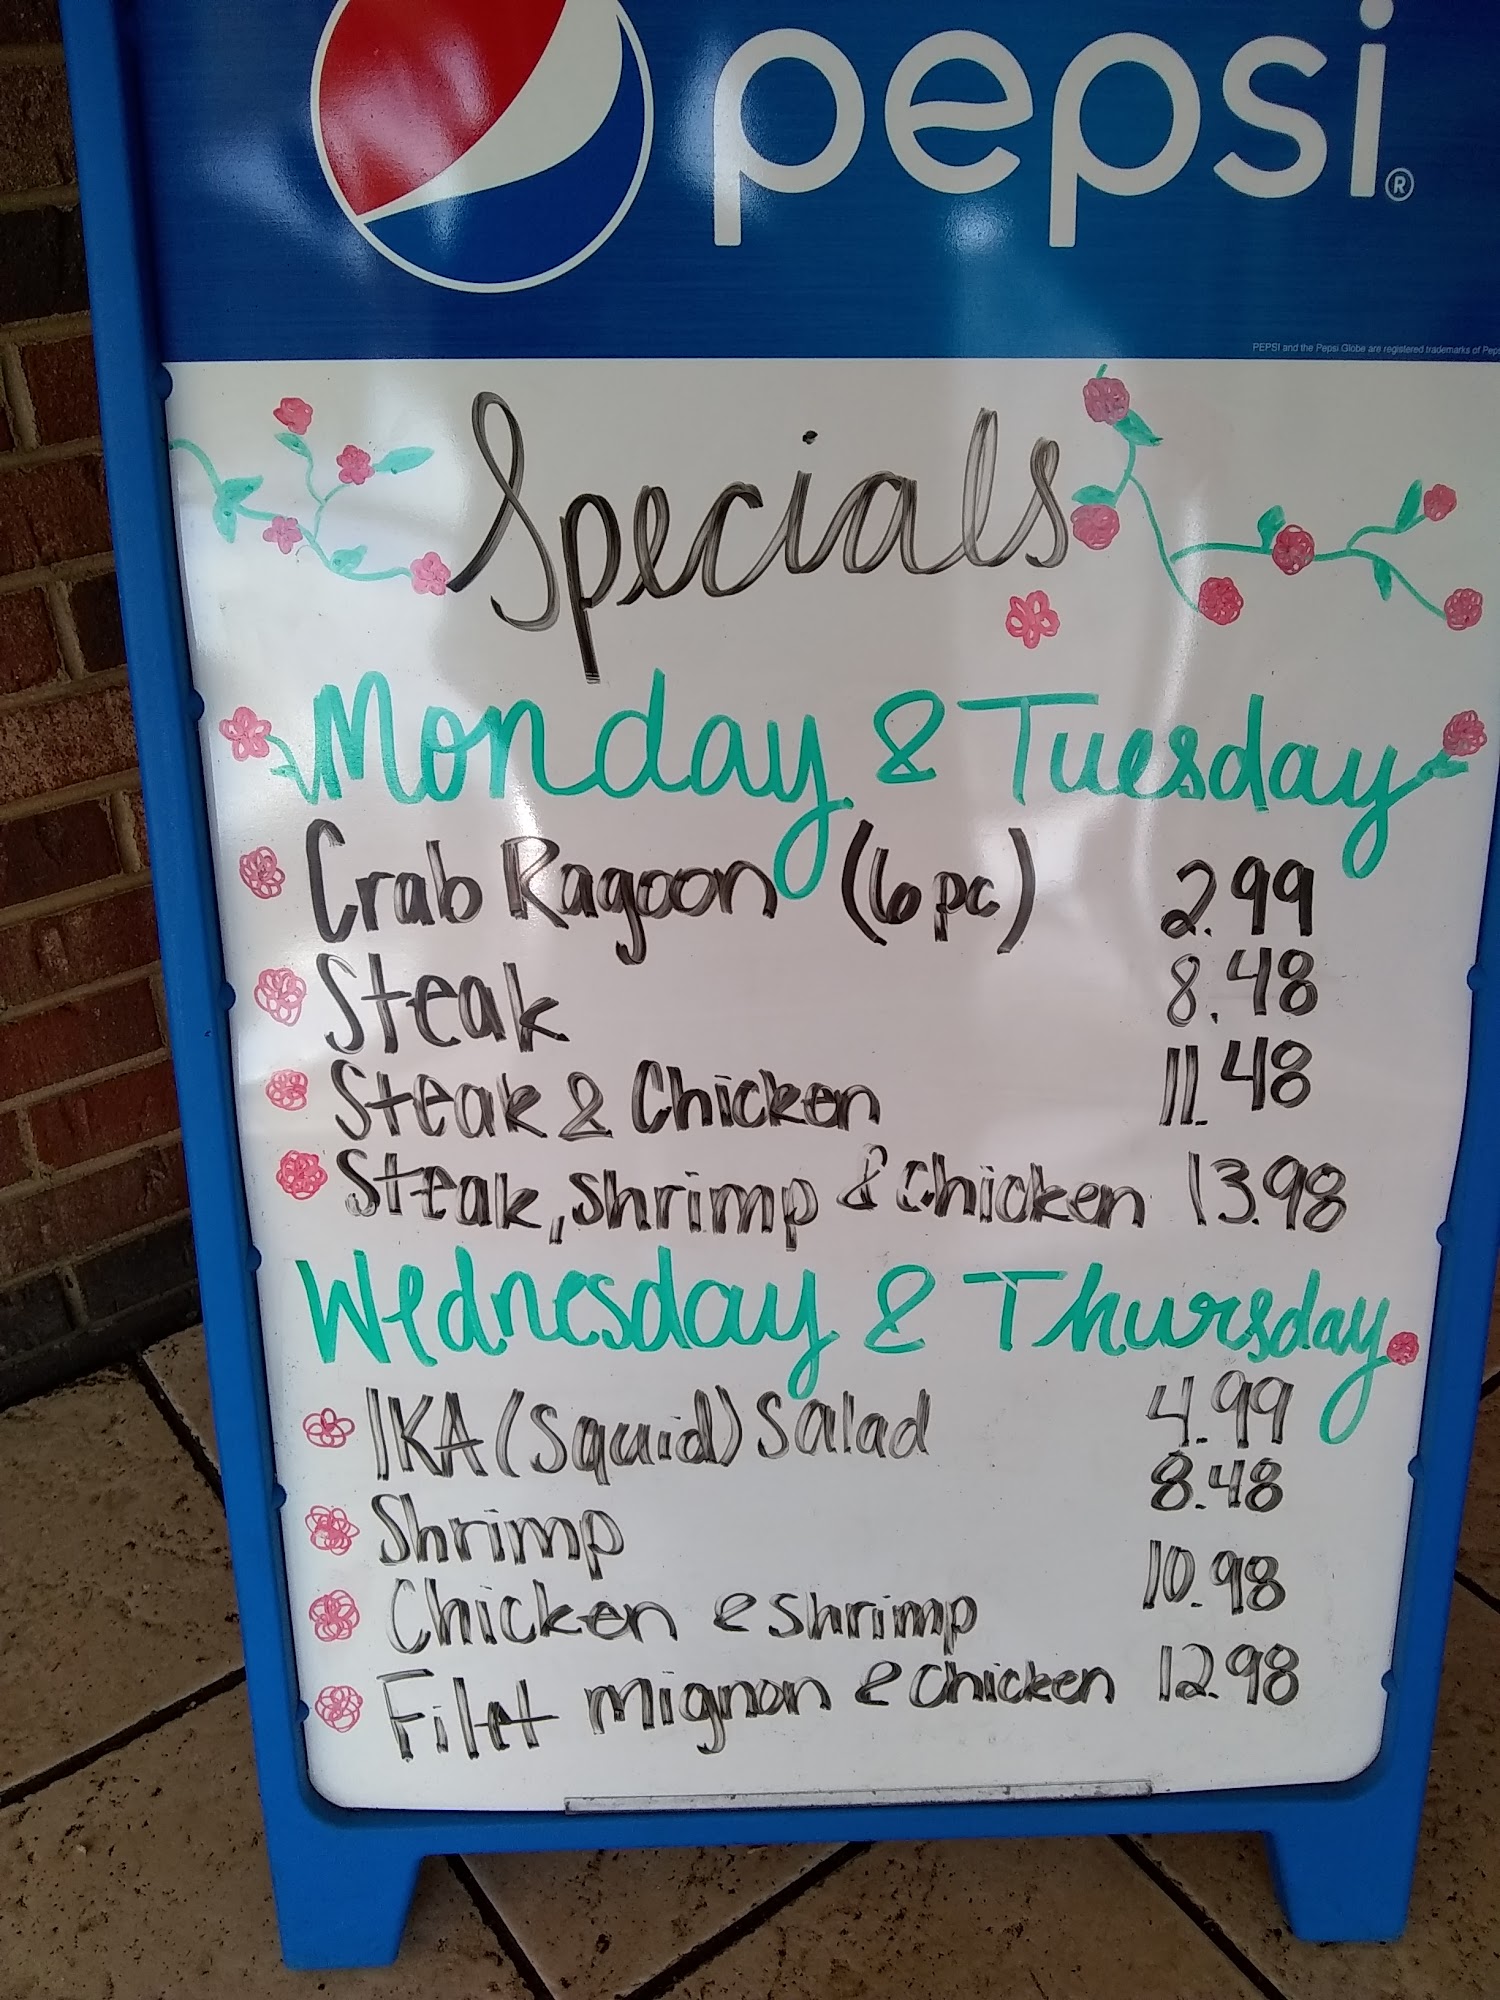 pepsi®
PEPSI and the Pepsi Globe are registered trademarks of
Specials
Monday & Tuesday
Crab Ragoon (6pc) 2.99
Steak 8.48
Steak & Chicken 11.48
Steak, Shrimp & Chicken 13.98
Wednesday & Thursday
IKA (Squid) Salad 4.99
Shrimp 8.48
Chicken & Shrimp 10.98
Filet mignon & Chicken 12.98